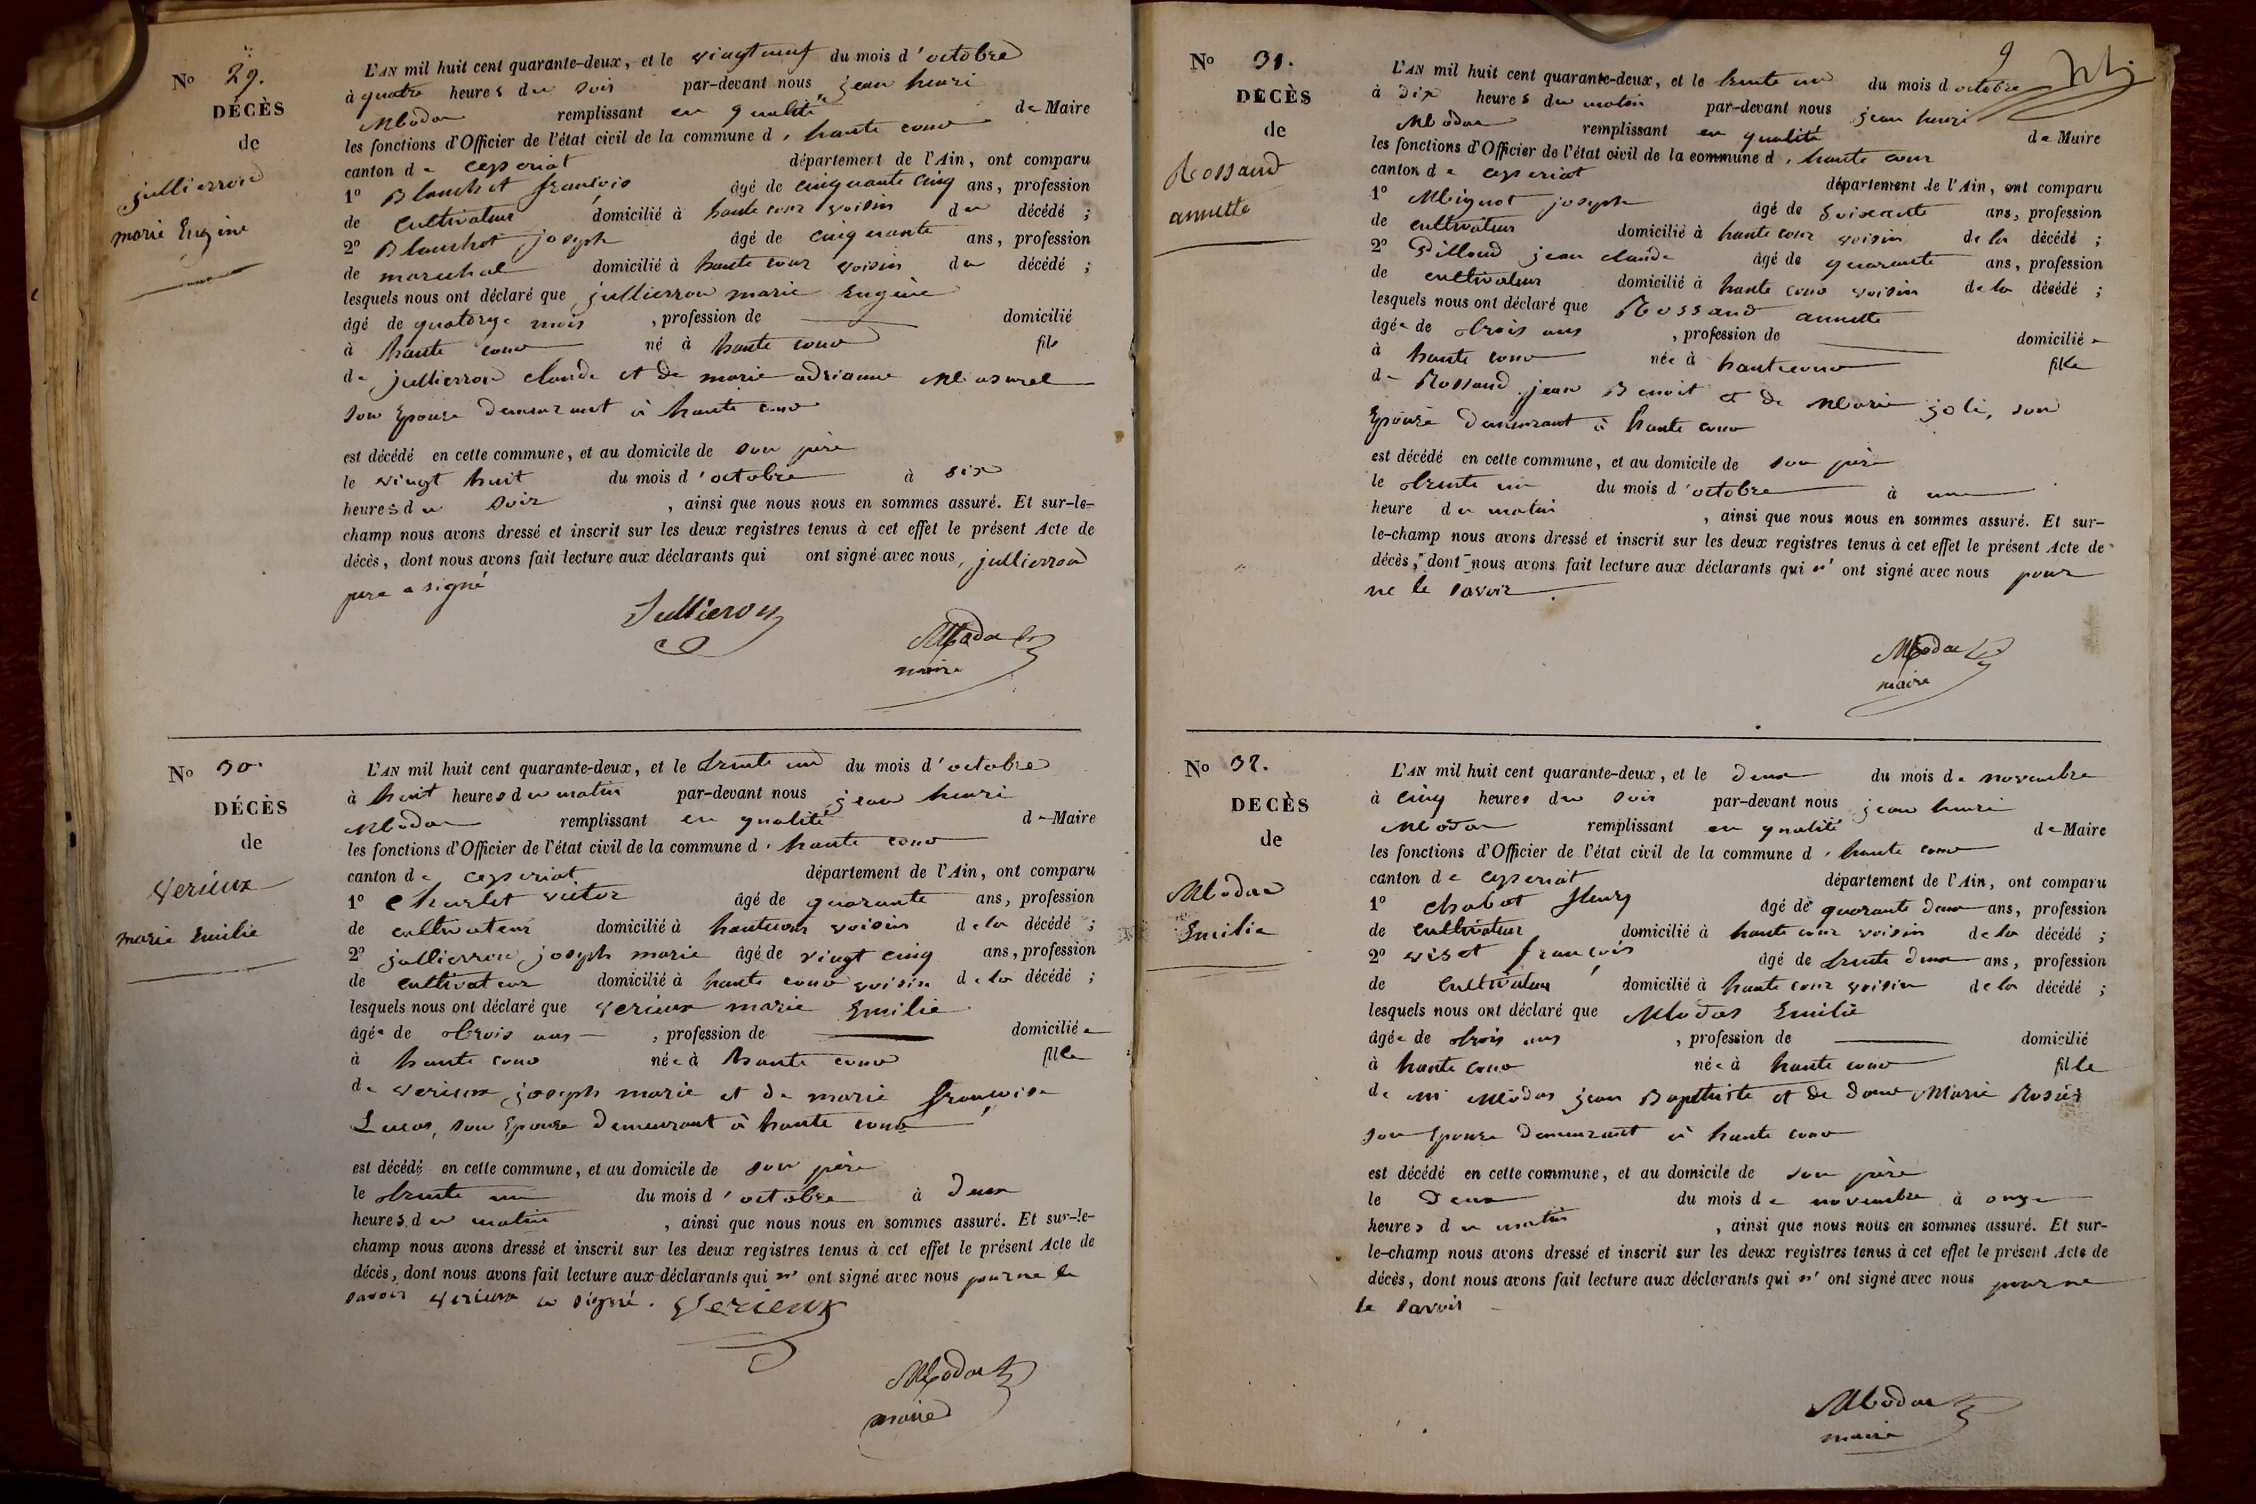 No 29.
DÉCÈS
de
jullierron
marie Eugène
L'AN mil huit cent quarante-deux, et le vingt neuf du mois d'octobre
à quatre heures du soir par-devant nous jean henri
Modas remplissant en qualité de Maire
les fonctions d'Officier de l'état civil de la commune d'haute cour
canton de ceyzeriat département de l'Ain, ont comparu
1º Blanchet françois âgé de cinquante cinq ans, profession
de cultivateur domicilié à haute cour voisin du décédé ;
2º Blanchet joseph âgé de cinquante ans, profession
de marechal domicilié à haute cour voisin du décédé ;
lesquels nous ont déclaré que jullierron marie Eugène
âgé de quatorze mois , profession de domicilié
à haute cour né à haute cour fils
de jullierron claude et de marie adrianne Masurel
son Epouse demeurant à haute cour
est décédé en cette commune, et au domicile de son père
le vingt huit du mois d'octobre à six
heures du soir , ainsi que nous nous en sommes assuré. Et sur-le-
champ nous avons dressé et inscrit sur les deux registres tenus à cet effet le présent Acte de
décès, dont nous avons fait lecture aux déclarants qui ont signé avec nous, jullierron
pere a signé
Jullieron
Modas
maire
No 30.
DÉCÈS
de
Verieux
marie Emilie
L'AN mil huit cent quarante-deux, et le trente un du mois d'octobre
à huit heures du matin par-devant nous jean henri
Modas remplissant en qualité de Maire
les fonctions d'Officier de l'état civil de la commune d'haute cour
canton de ceyzeriat département de l'Ain, ont comparu
1º Charlet victor âgé de quarante ans, profession
de cultivateur domicilié à hautecour voisin de la décédé ;
2º jullierron joseph marie âgé de vingt cinq ans, profession
de cultivateur domicilié à haute cour voisin de la décédé ;
lesquels nous ont déclaré que verieux marie Emilie
âgée de trois ans , profession de domiciliée
à haute cour née à haute cour fille
de verieux joseph marie et de marie françoise
Lucas, son Epouse demeurant à haute cour
est décédé en cette commune, et au domicile de son père
le trente un du mois d'octobre à deux
heures du matin , ainsi que nous nous en sommes assuré. Et sur-le-
champ nous avons dressé et inscrit sur les deux registres tenus à cet effet le présent Acte de
décès, dont nous avons fait lecture aux déclarants qui n'ont signé avec nous pour ne le
savoir verieux a signé. Verieux
Modas
maire
9
No 31.
DÉCÈS
de
Rossand
annette
L'AN mil huit cent quarante-deux, et le trente un du mois d octobre
à dix heures du matin par-devant nous jean henri
Modas remplissant en qualité de Maire
les fonctions d'Officier de l'état civil de la commune d'haute cour
canton de ceyzeriat département de l'Ain, ont comparu
1º Mignot joseph âgé de soixante ans, profession
de cultivateur domicilié à haute cour voisin de la décédé ;
2º Pilloud jean claude âgé de quarante ans, profession
de cultivateur domicilié à haute cour voisin de la décédé ;
lesquels nous ont déclaré que Rossand annette
âgée de trois ans , profession de domiciliée
à haute cour née à hautecour fille
de Rossand jean Benoit et de Marie joli, son
Epouse demeurant à haute cour
est décédé en cette commune, et au domicile de son père
le trente un du mois d'octobre à une
heure du matin , ainsi que nous nous en sommes assuré. Et sur-
le-champ nous avons dressé et inscrit sur les deux registres tenus à cet effet le présent Acte de
décès, dont nous avons fait lecture aux déclarants qui n'ont signé avec nous pour
ne le savoir
Modas
maire
No 32.
DECÈS
de
Modas
Emilie
L'AN mil huit cent quarante-deux, et le deux du mois de novembre
à cinq heures du soir par-devant nous jean henri
Modas remplissant en qualité de Maire
les fonctions d'Officier de l'état civil de la commune d'haute cour
canton de ceyzeriat département de l'Ain, ont comparu
1º chabot fleury âgé de quarante deux ans, profession
de cultivateur domicilié à haute cour voisin de la décédé ;
2º viset françois âgé de trente deux ans, profession
de cultivateur domicilié à haute cour voisin de la décédé ;
lesquels nous ont déclaré que Modas Emilie
âgée de trois ans , profession de domicilié
à haute cour née à haute cour fille
de mr Modas jean Baptiste et de dame Marie Rosier
son Epouse demeurant à haute cour
est décédé en cette commune, et au domicile de son père
le deux du mois de novembre à onze
heures du matin , ainsi que nous nous en sommes assuré. Et sur-
le-champ nous avons dressé et inscrit sur les deux registres tenus à cet effet le présent Acte de
décès, dont nous avons fait lecture aux déclarants qui n'ont signé avec nous pour ne
le savoir
Modas
maire